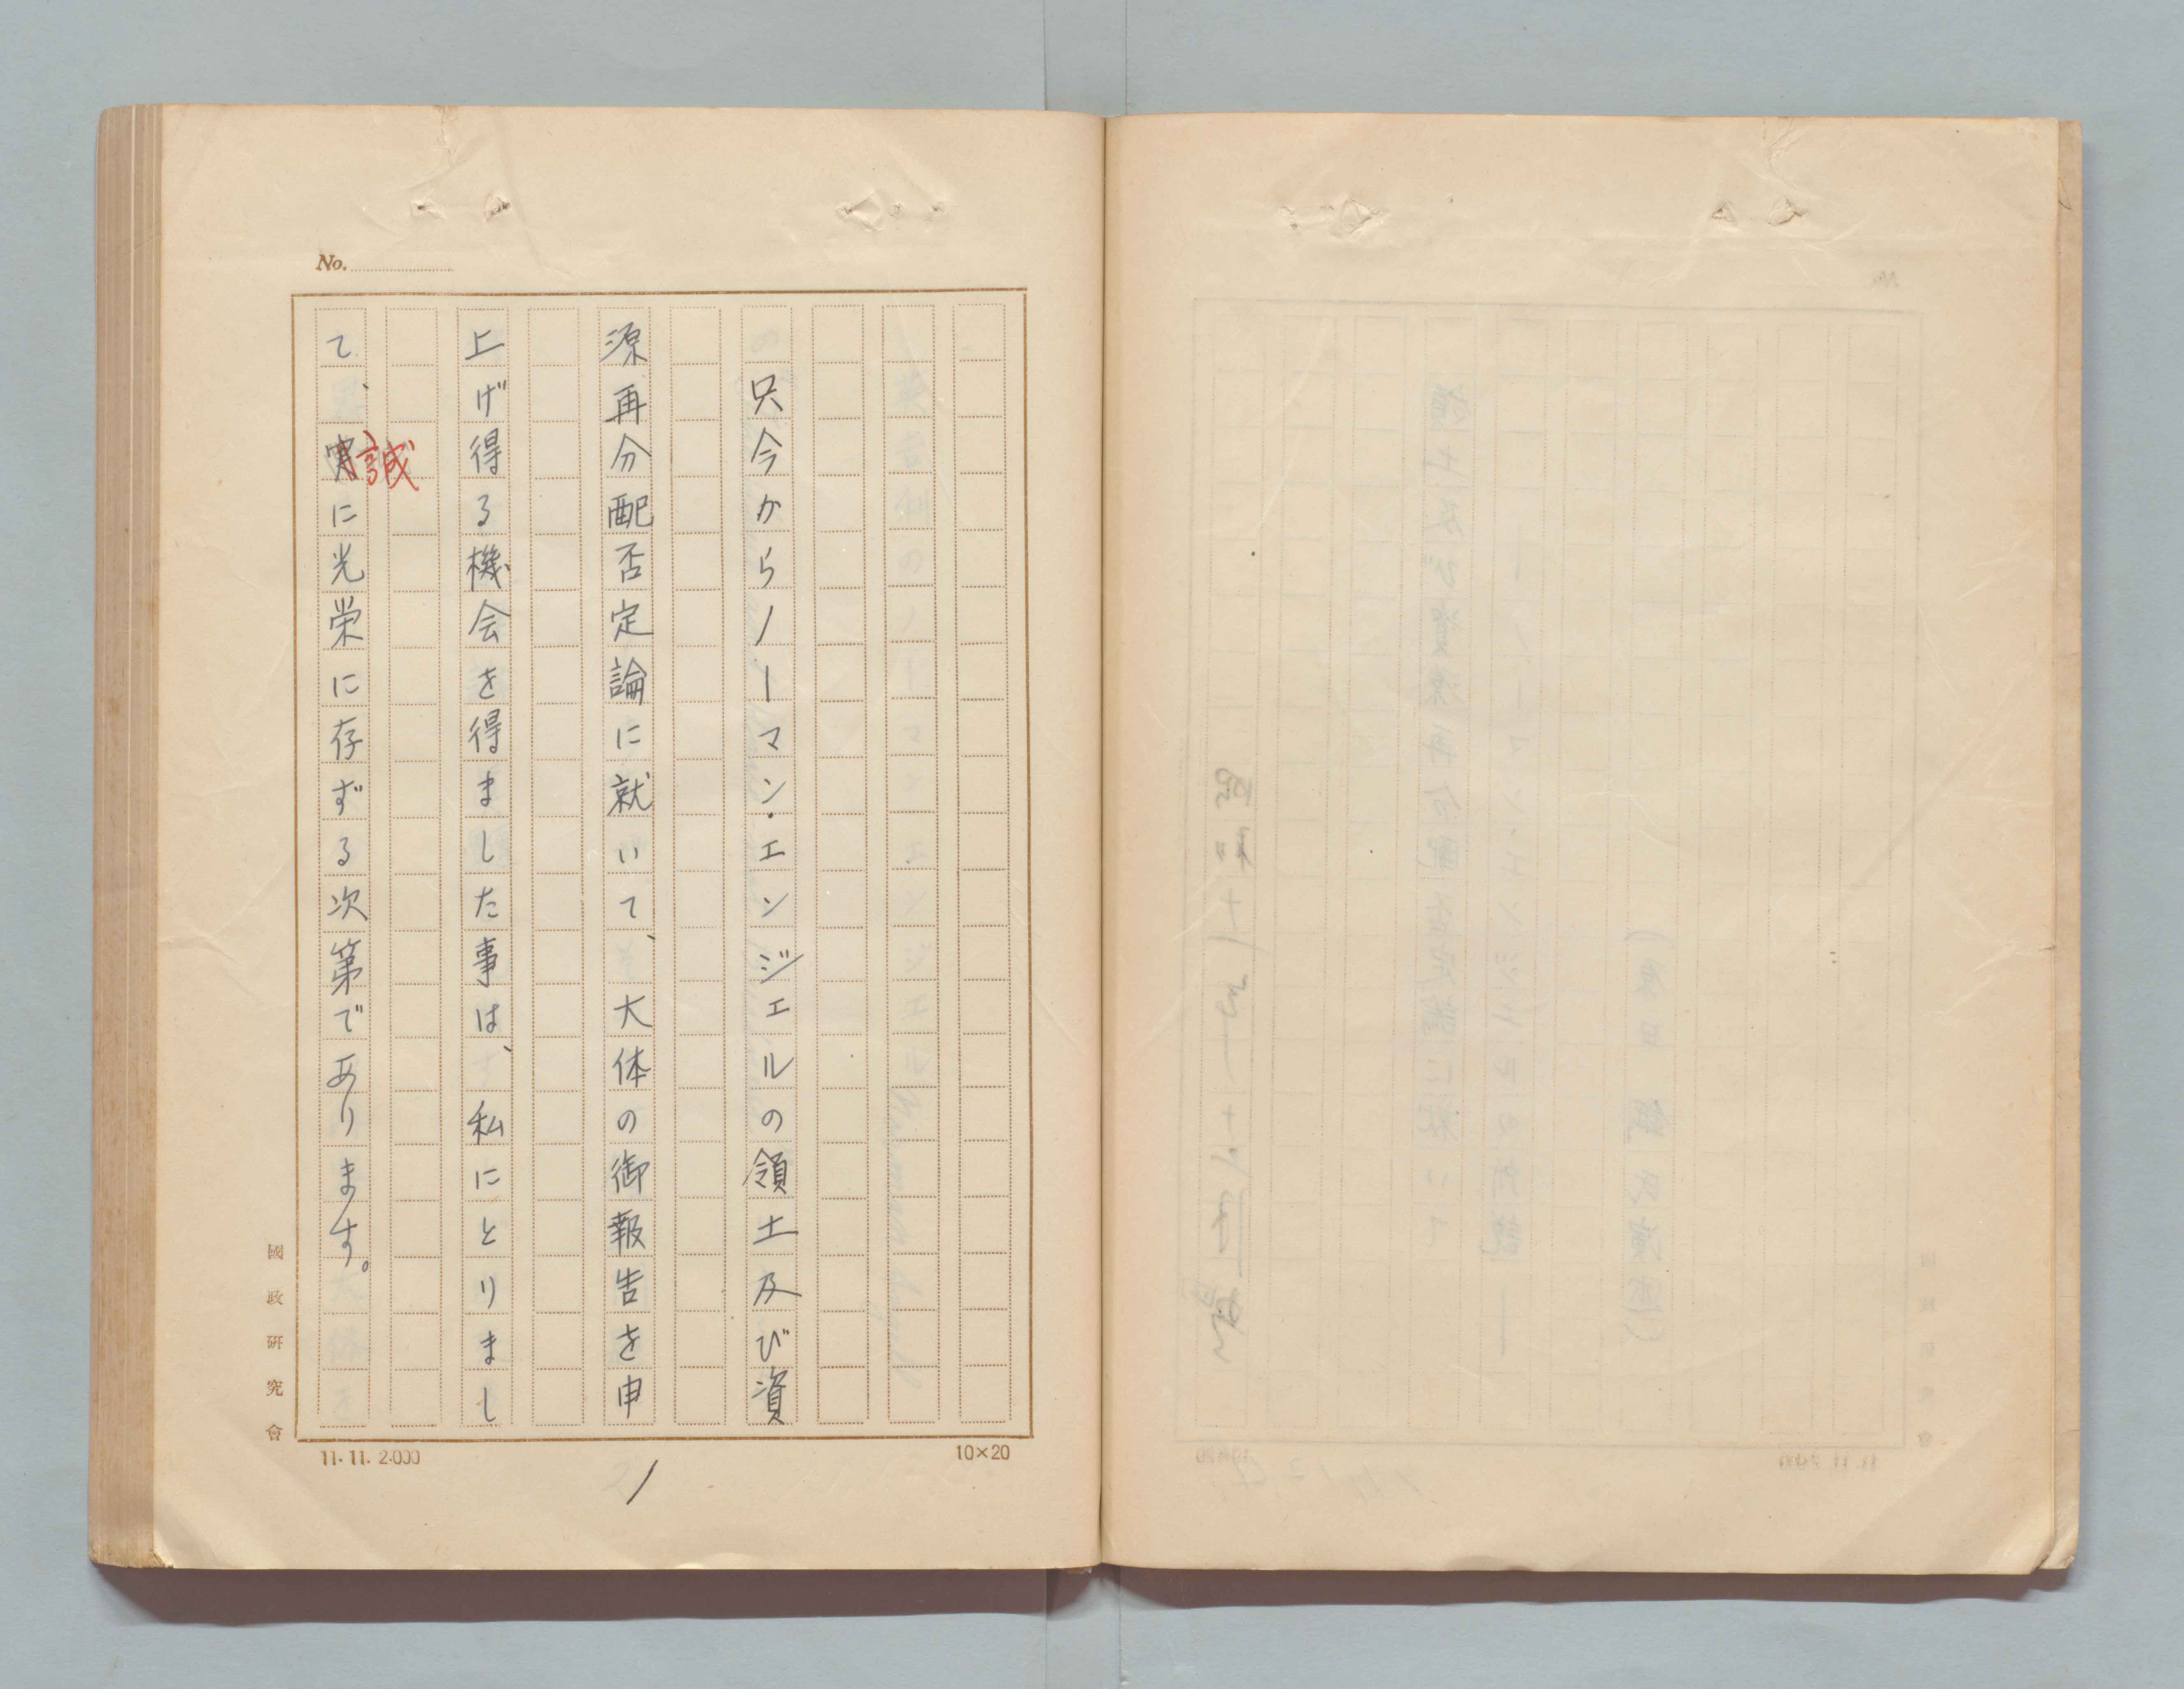 No.
只今からノーマン・エンジェルの領土及び資
源再分配否定論に就いて、大体の御報告を申
上げ得る機会を得ました事は、私にとりまし
て、実誠に光栄に存ずる次第であります。
國政研究會
11.11.2.000
10×20
1